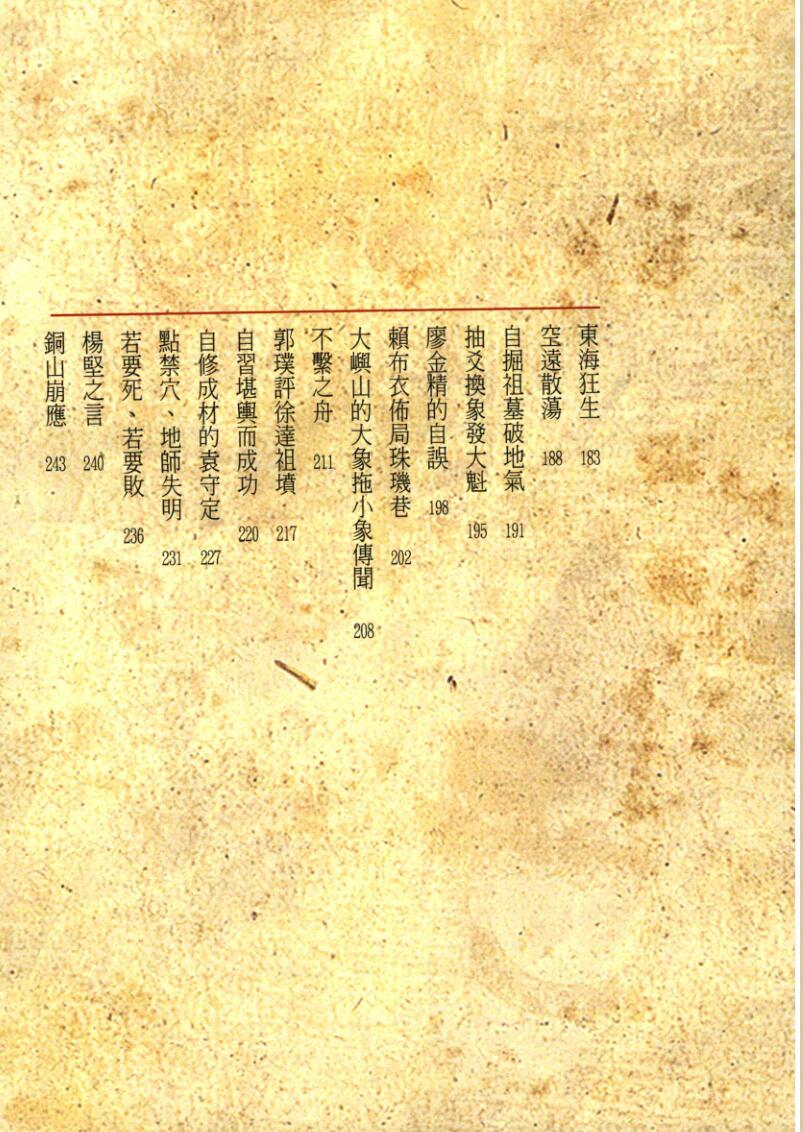 東海狂生 183
空遠散蕩 188
自掘祖墓破地氣 191
抽爻換象發大魁 195
廖金精的自誤 198
賴布衣佈局珠璣巷 202
大嶼山的大象拖小象傳聞 208
不繫之舟 211
郭璞評徐達祖墳 217
自習堪輿而成功 220
自修成材的袁守定 227
點禁穴、地師失明 231
若要死、若要敗 236
楊堅之言 240
銅山崩應 243